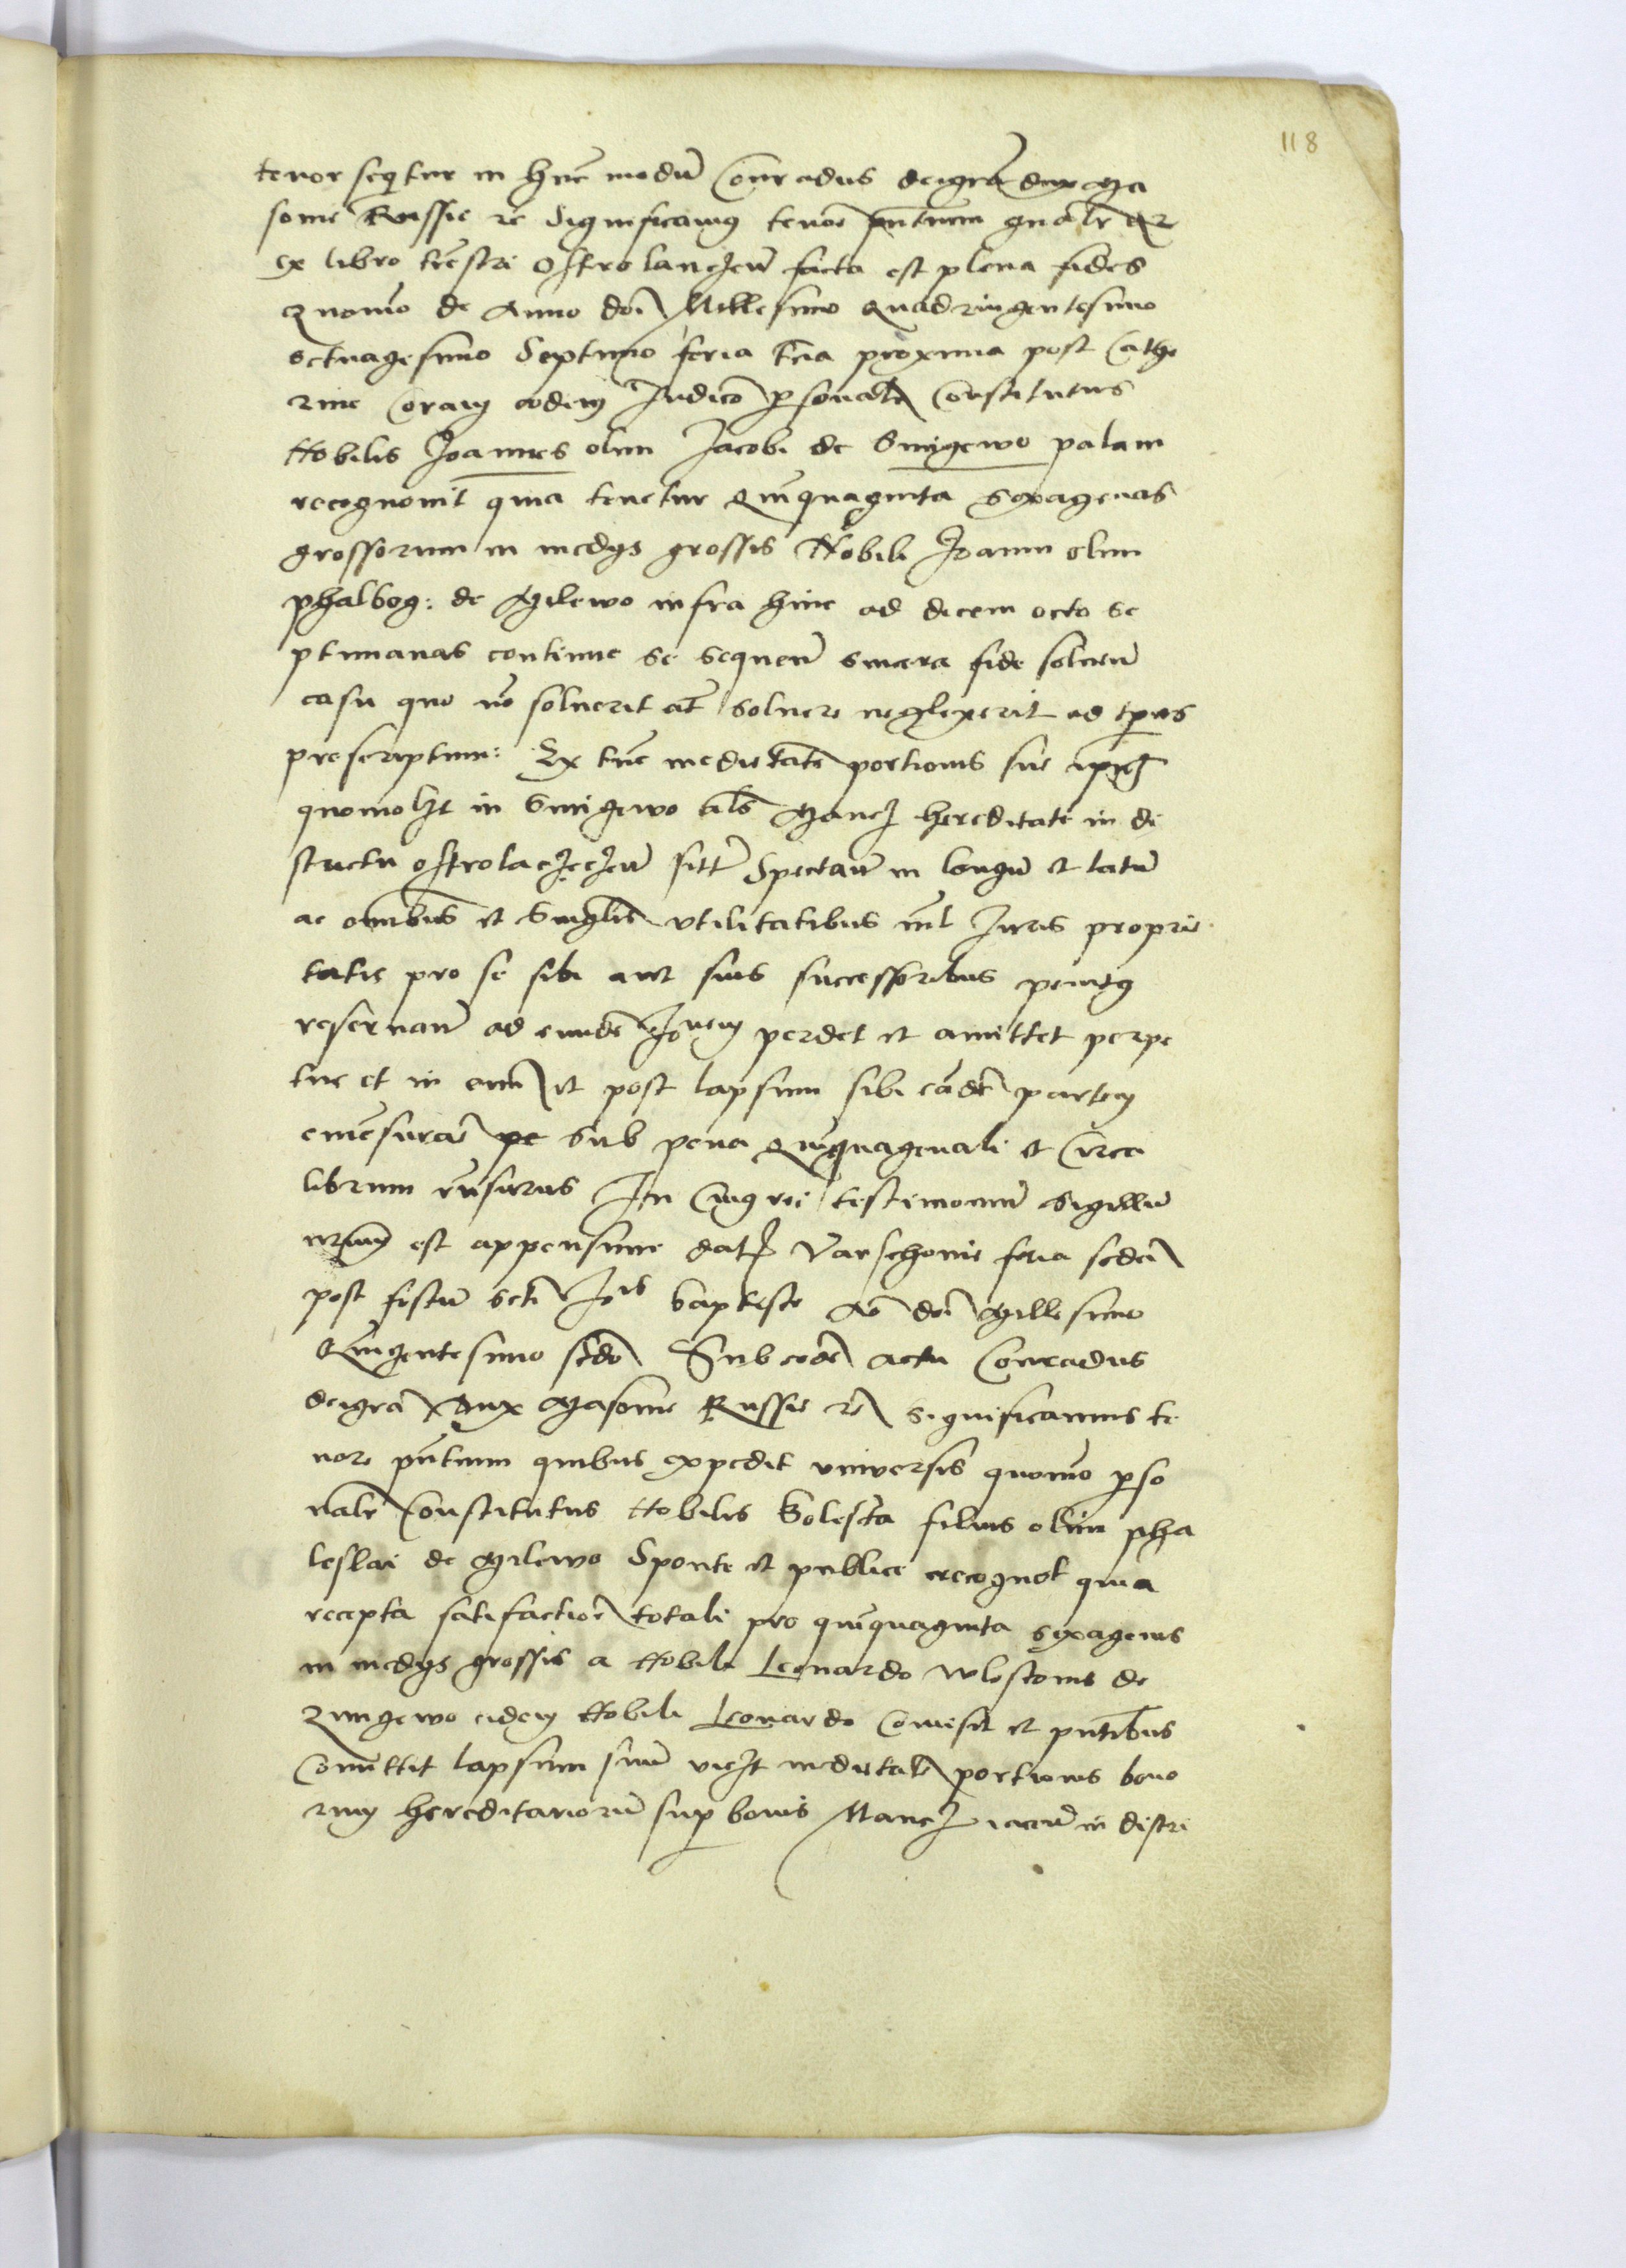 118
tenor seqtur in hūc modū Conradus deigrā dux Ma
sovie Russie rē Significamus tenore pñtium gñalr qr
ex libro trēstri Ostrolanczeñ facta est plena fides
Quomō de Anno doī Millesimo Quadringentesimo
octuagesimo Septimo feria tr̄cia proxima post Cathe
rine Coram eodem Judicō psonalr Constitutus
Nobilis Joannes olim Jacobi de Smigewo palam
recognovit quia tenetur Quīquaginta Sexagenas
grossorum in medys grossis Nobili Joanni olim
phalbog: de Milewo infra hinc ad decem octo se
ptimanas continue se sequeñ sincera fide solueñ
casu quo nō soluerit aūt soluere neglexerit ad tpus
prescriptum: Ex tūc medietatē portionis sue
quomo hēt in Smigewo als Mancz hereditate in di
strictu Ostrolaczeczeñ sitē Spectañ in longū et latū
ac omībus et Singlis utilitatibus nīl Juris proprie
tatis pro se sibi aut suis successoribus penitus
reservañ ad eundē Joānem perdet et amittet perpe
tue et in evum et post lapsum sibi eādē partem
emēsurare pe sub pena Quīquagenali et Circa
librum rn̄surus In Cuius rei testimoniū Sigillū
nr̄um est appensum dat̄ Varschovie feria secda
post festū scti Jois baptiste Aō doī Millesimo
Quingentesimo scdō Sub eodē actu Conradus
deigrā Dux Masovie Russie rē significamus te
nore pñtium quibus expedit universis quomō pso
nalr Constitutus Nobilis Bolesta filius olim pha
leslai de Milewo Sponte et publice recognot quia
recepta satisfactiōe totali pro quīquaginta sexagenis
in medys grossis a Nobili Leonardo Wlostonis de
Zmigewo eidem Nobili Leonardo Comisit et pñtibus
Comittit lapsum suum viczt medietatē portionis bono
rum hereditariorū sup bonis Mancz iaceñ in distri